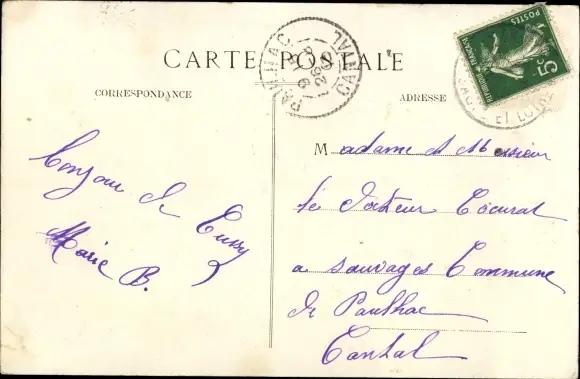 CARTE POSTALE
CORRESPONDANCE
ADRESSE
PAULHAC
CANTAL
POSTES
5c
REPUBLIQUE FRANÇAISE
ET LOIRE
Bonjour de Cussy
Marie B.
Madame et Monsieur
le Docteur
a Sauvages Commune
de Paulhac
Cantal